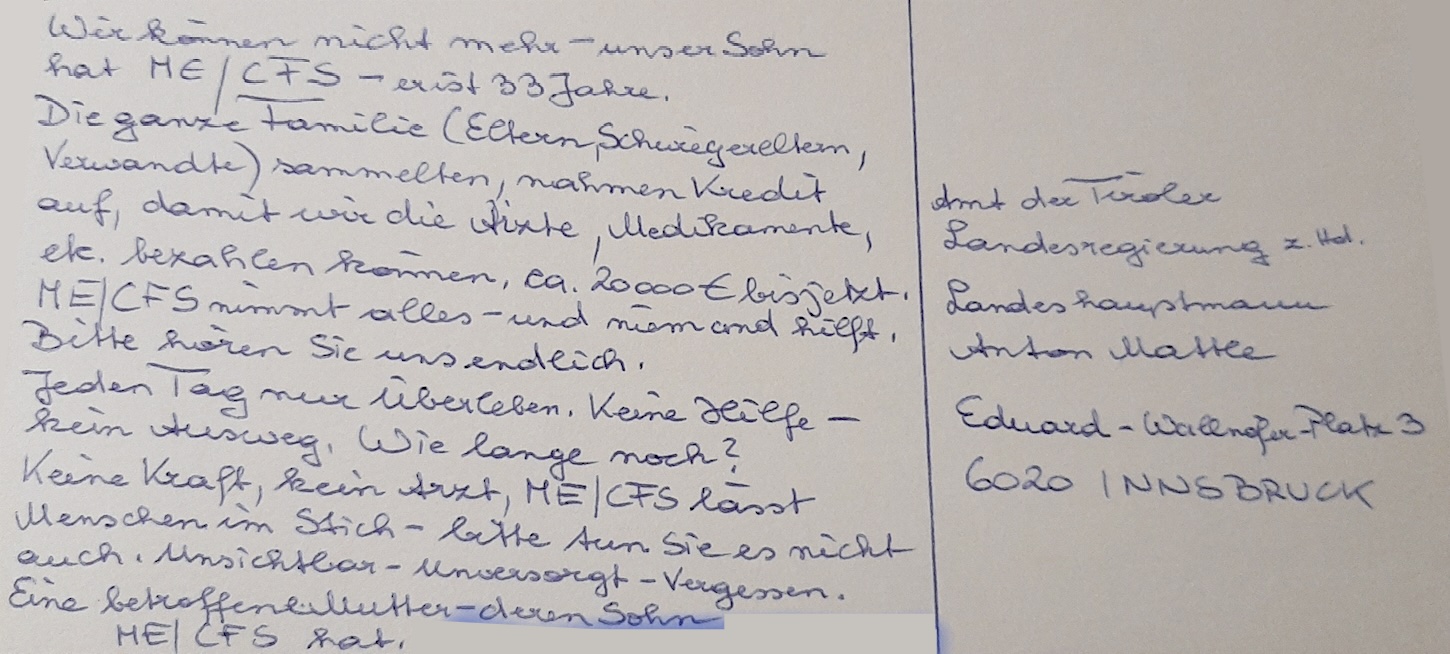 Wir können nicht mehr – unser Sohn
hat ME/CFS – er ist 33 Jahre.
Die ganze Familie (Eltern, Schwiegereltern,
Verwandte) sammelten, nahmen Kredit
auf, damit wir die Ärzte, Medikamente,
etc. bezahlen können, ca. 20000 € bis jetzt.
ME/CFS nimmt alles – und niemand hilft.
Bitte hören Sie uns endlich.
Jeden Tag nur Überleben. Keine Hilfe –
kein Ausweg. Wie lange noch?
Keine Kraft, kein Arzt, ME/CFS lässt
Menschen im Stich – bitte tun Sie es nicht
auch. Unsichtbar – Unversorgt – Vergessen.
Eine betroffene Mutter – deren Sohn
ME/CFS hat.
Amt der Tiroler
Landesregierung z. Hd.
Landeshauptmann
Anton Mattle
Eduard-Wallnöfer-Platz 3
6020 INNSBRUCK